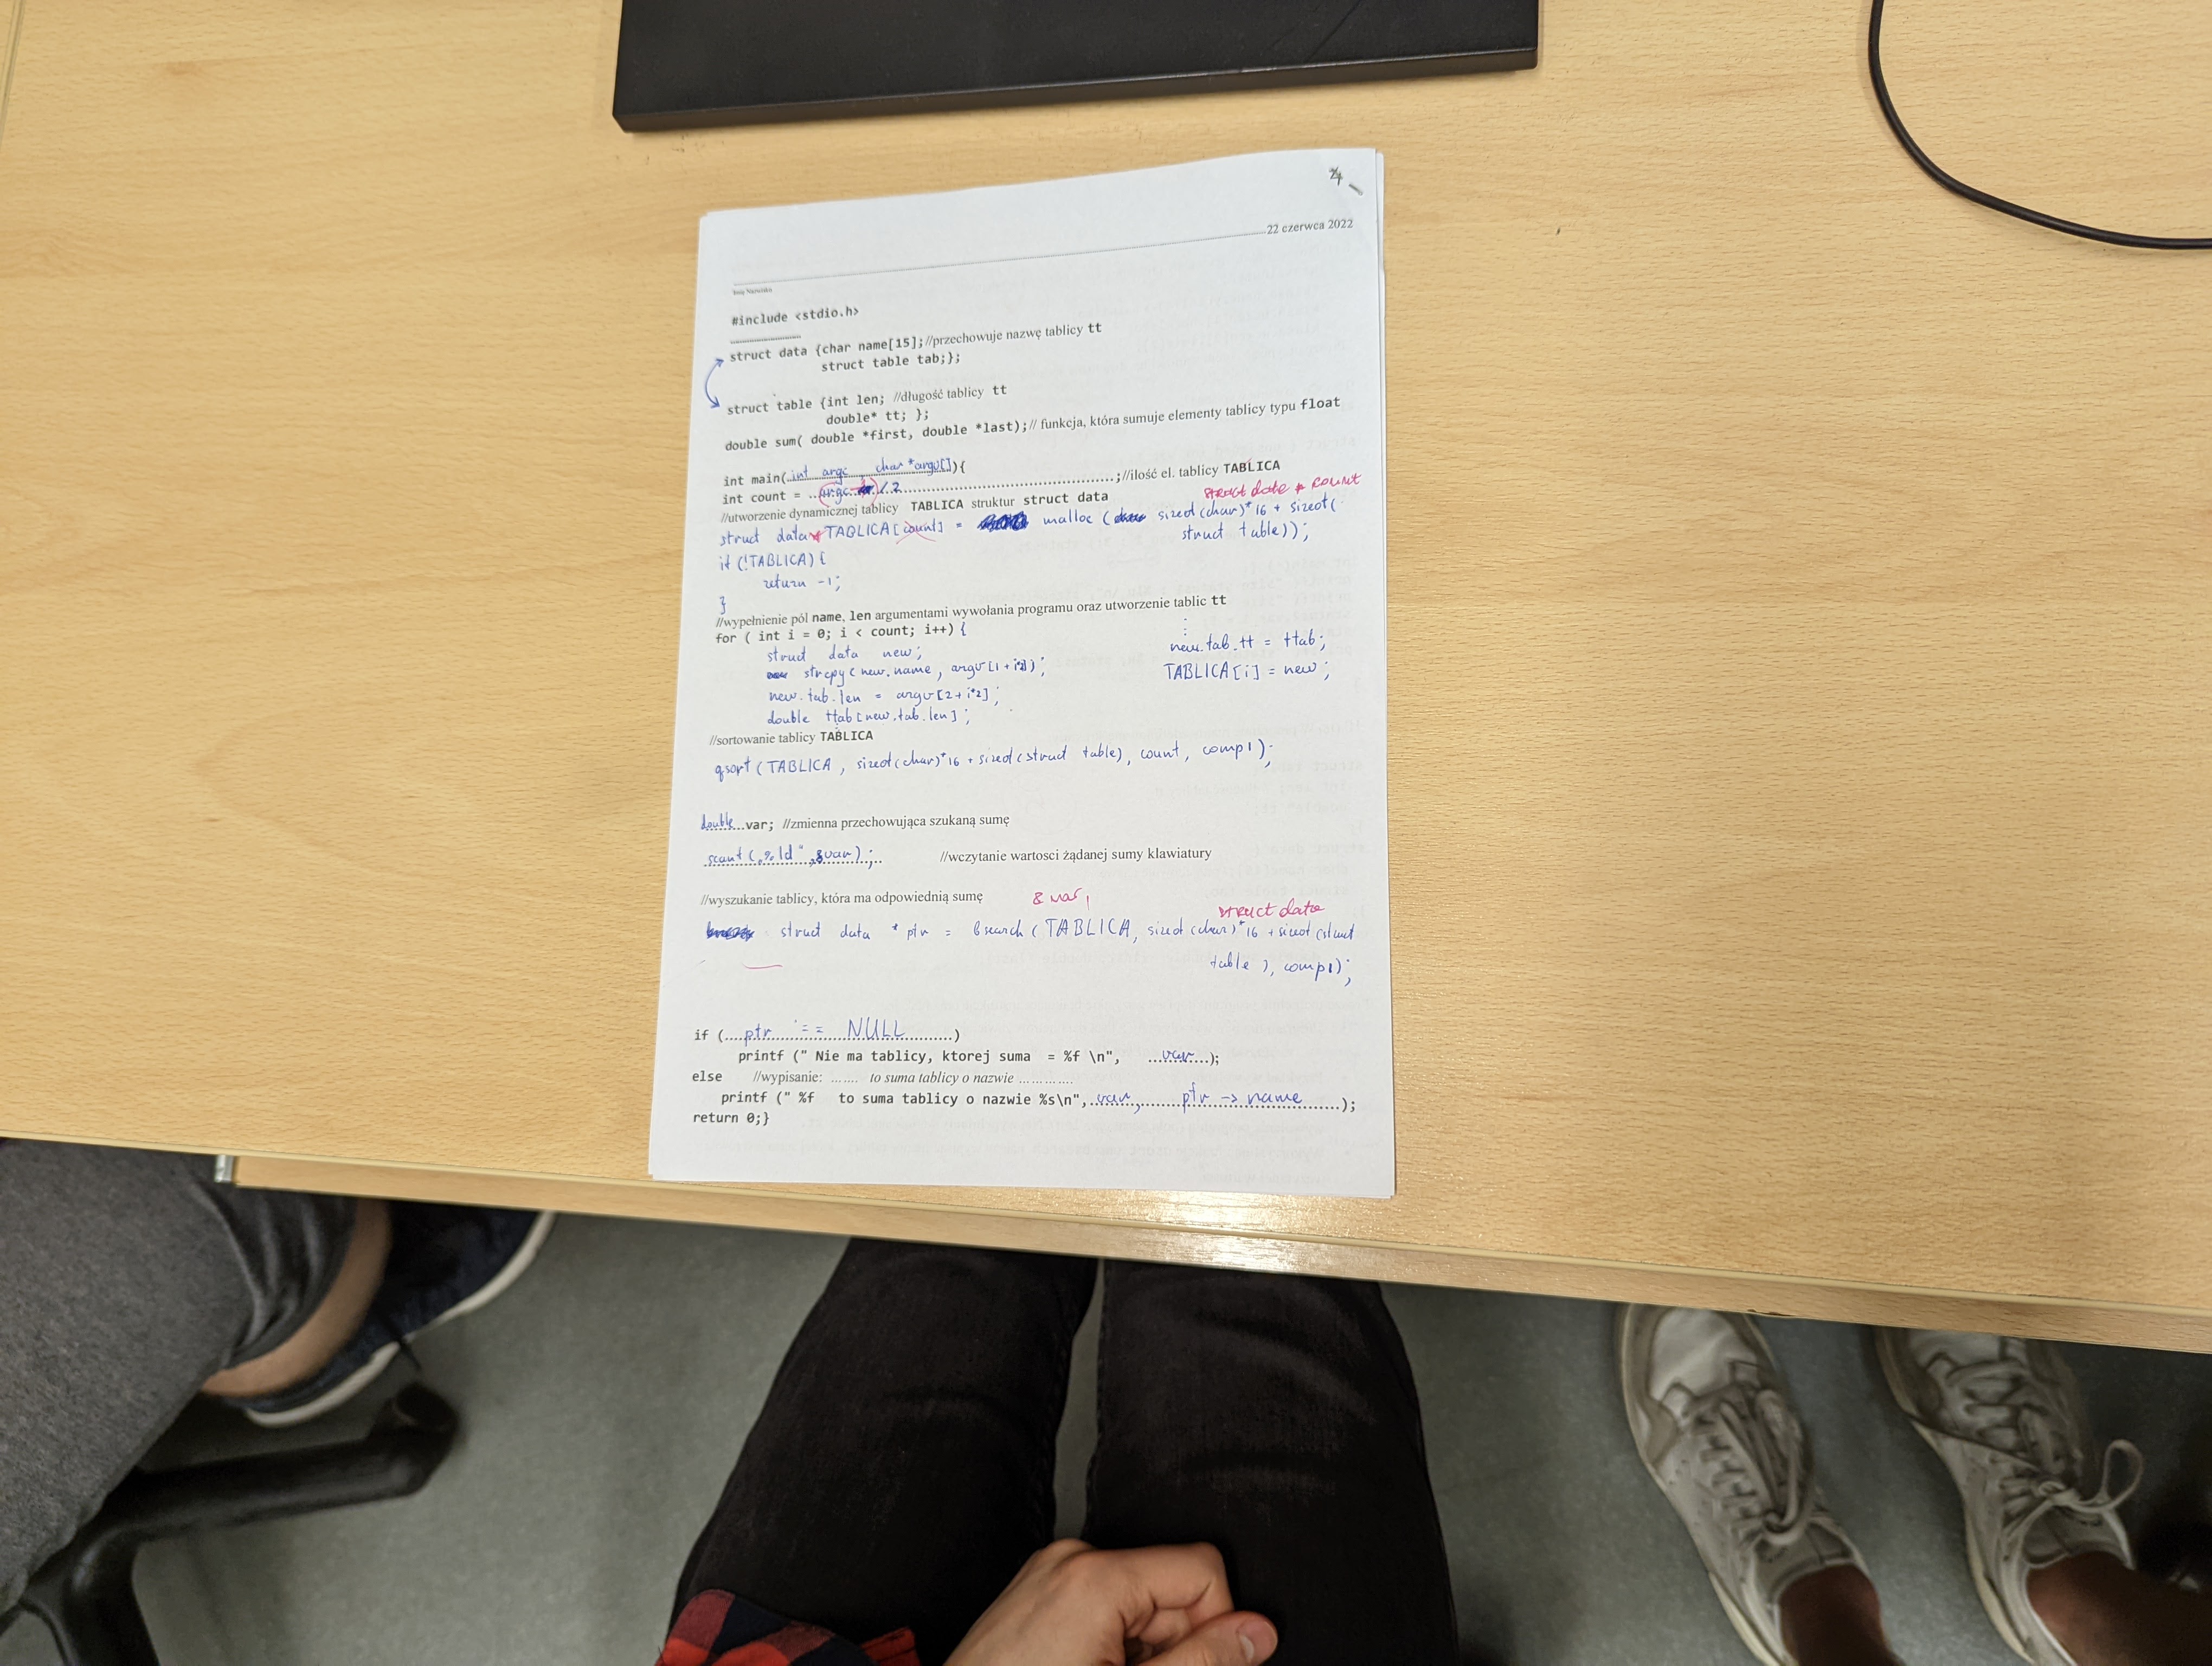 22 czerwca 2022
Imię Nazwisko
#include <stdio.h>
struct data {char name[15];//przechowuje nazwę tablicy tt
struct table tab;};
struct table {int len; //długość tablicy tt
double* tt; };
double sum( double *first, double *last);// funkcja, która sumuje elementy tablicy typu float
int main(int argc, char *argv[]){
int count = argc /2 ;//ilość el. tablicy TABLICA
struct data * count
//utworzenie dynamicznej tablicy TABLICA struktur struct data
struct data* TABLICA[count] = malloc ( sizeof(char)*16 + sizeof(
struct table));
if (!TABLICA){
return -1;
}
//wypełnienie pól name, len argumentami wywołania programu oraz utworzenie tablic tt
for ( int i = 0; i < count; i++) {
struct data new;
strcpy(new.name, argv[1+i*2]);
new.tab.len = argv[2+i*2];
double ttab[new.tab.len];
:
new.tab.tt = ttab;
TABLICA[i] = new;
//sortowanie tablicy TABLICA
qsort(TABLICA, sizeof(char)*16 + sizeof(struct table), count, comp1);
double var; //zmienna przechowująca szukaną sumę
scanf(„%ld", &var); //wczytanie wartosci żądanej sumy klawiatury
//wyszukanie tablicy, która ma odpowiednią sumę
& var,
struct data
struct data *ptr = bsearch(TABLICA, sizeof(char)*16 + sizeof(struct
table), comp1);
if (ptr == NULL)
printf (" Nie ma tablicy, ktorej suma = %f \n", var);
else //wypisanie: ....... to suma tablicy o nazwie ............
printf (" %f to suma tablicy o nazwie %s\n", var, ptr -> name);
return 0;}